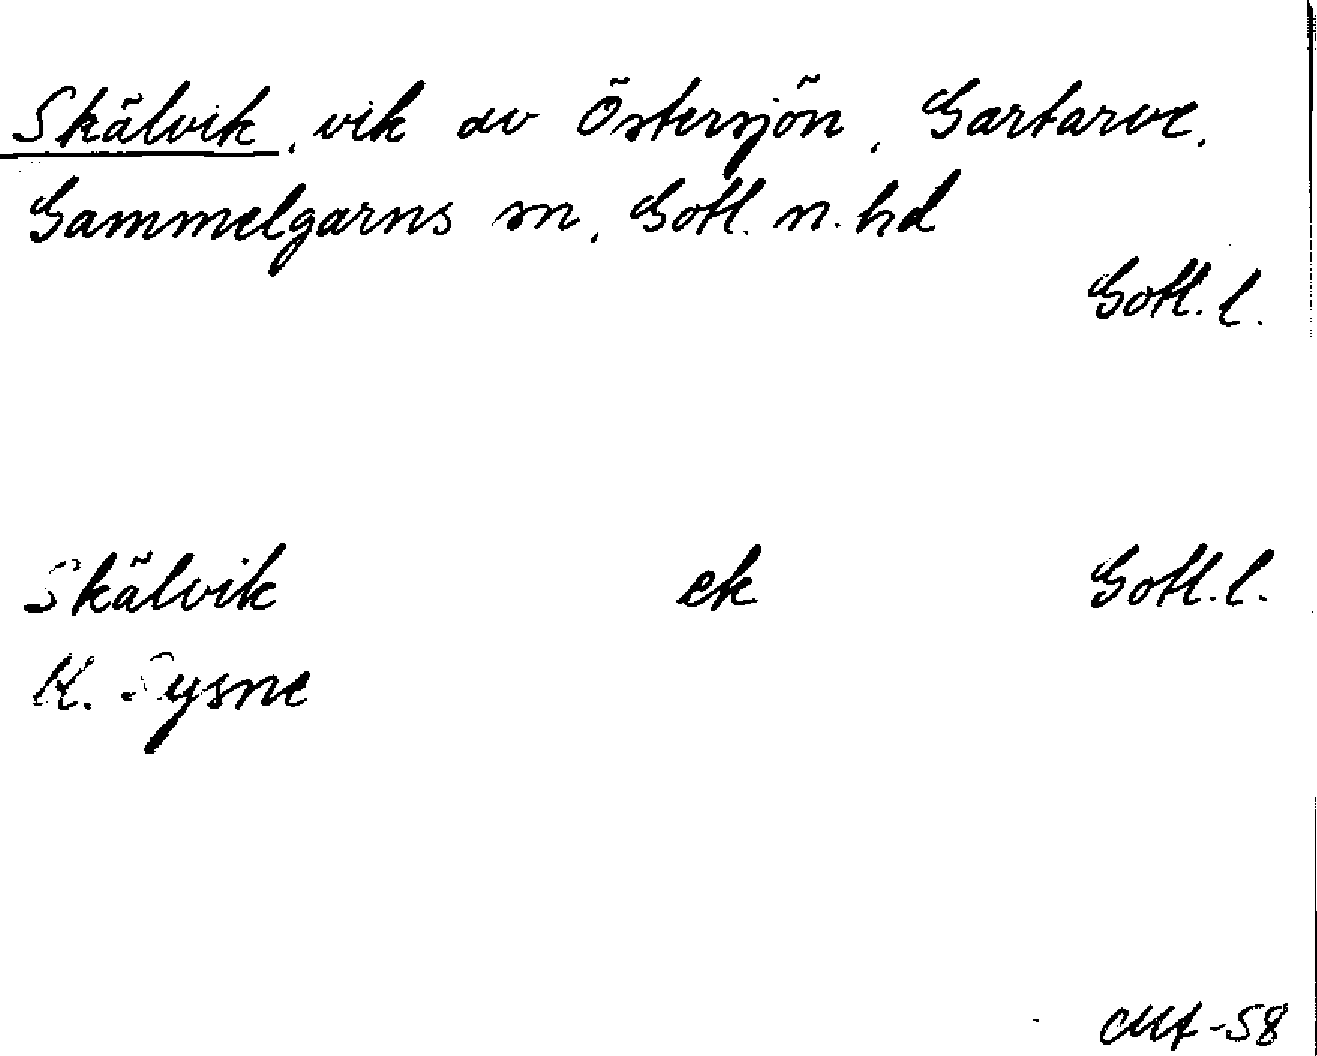 Skälvik, vik av Östersjön, Gartarve,
Gammelgarns sn, Gotl. n. hd
Gotl. l.
Skälvik ek Gotl. l.
K. Sysne